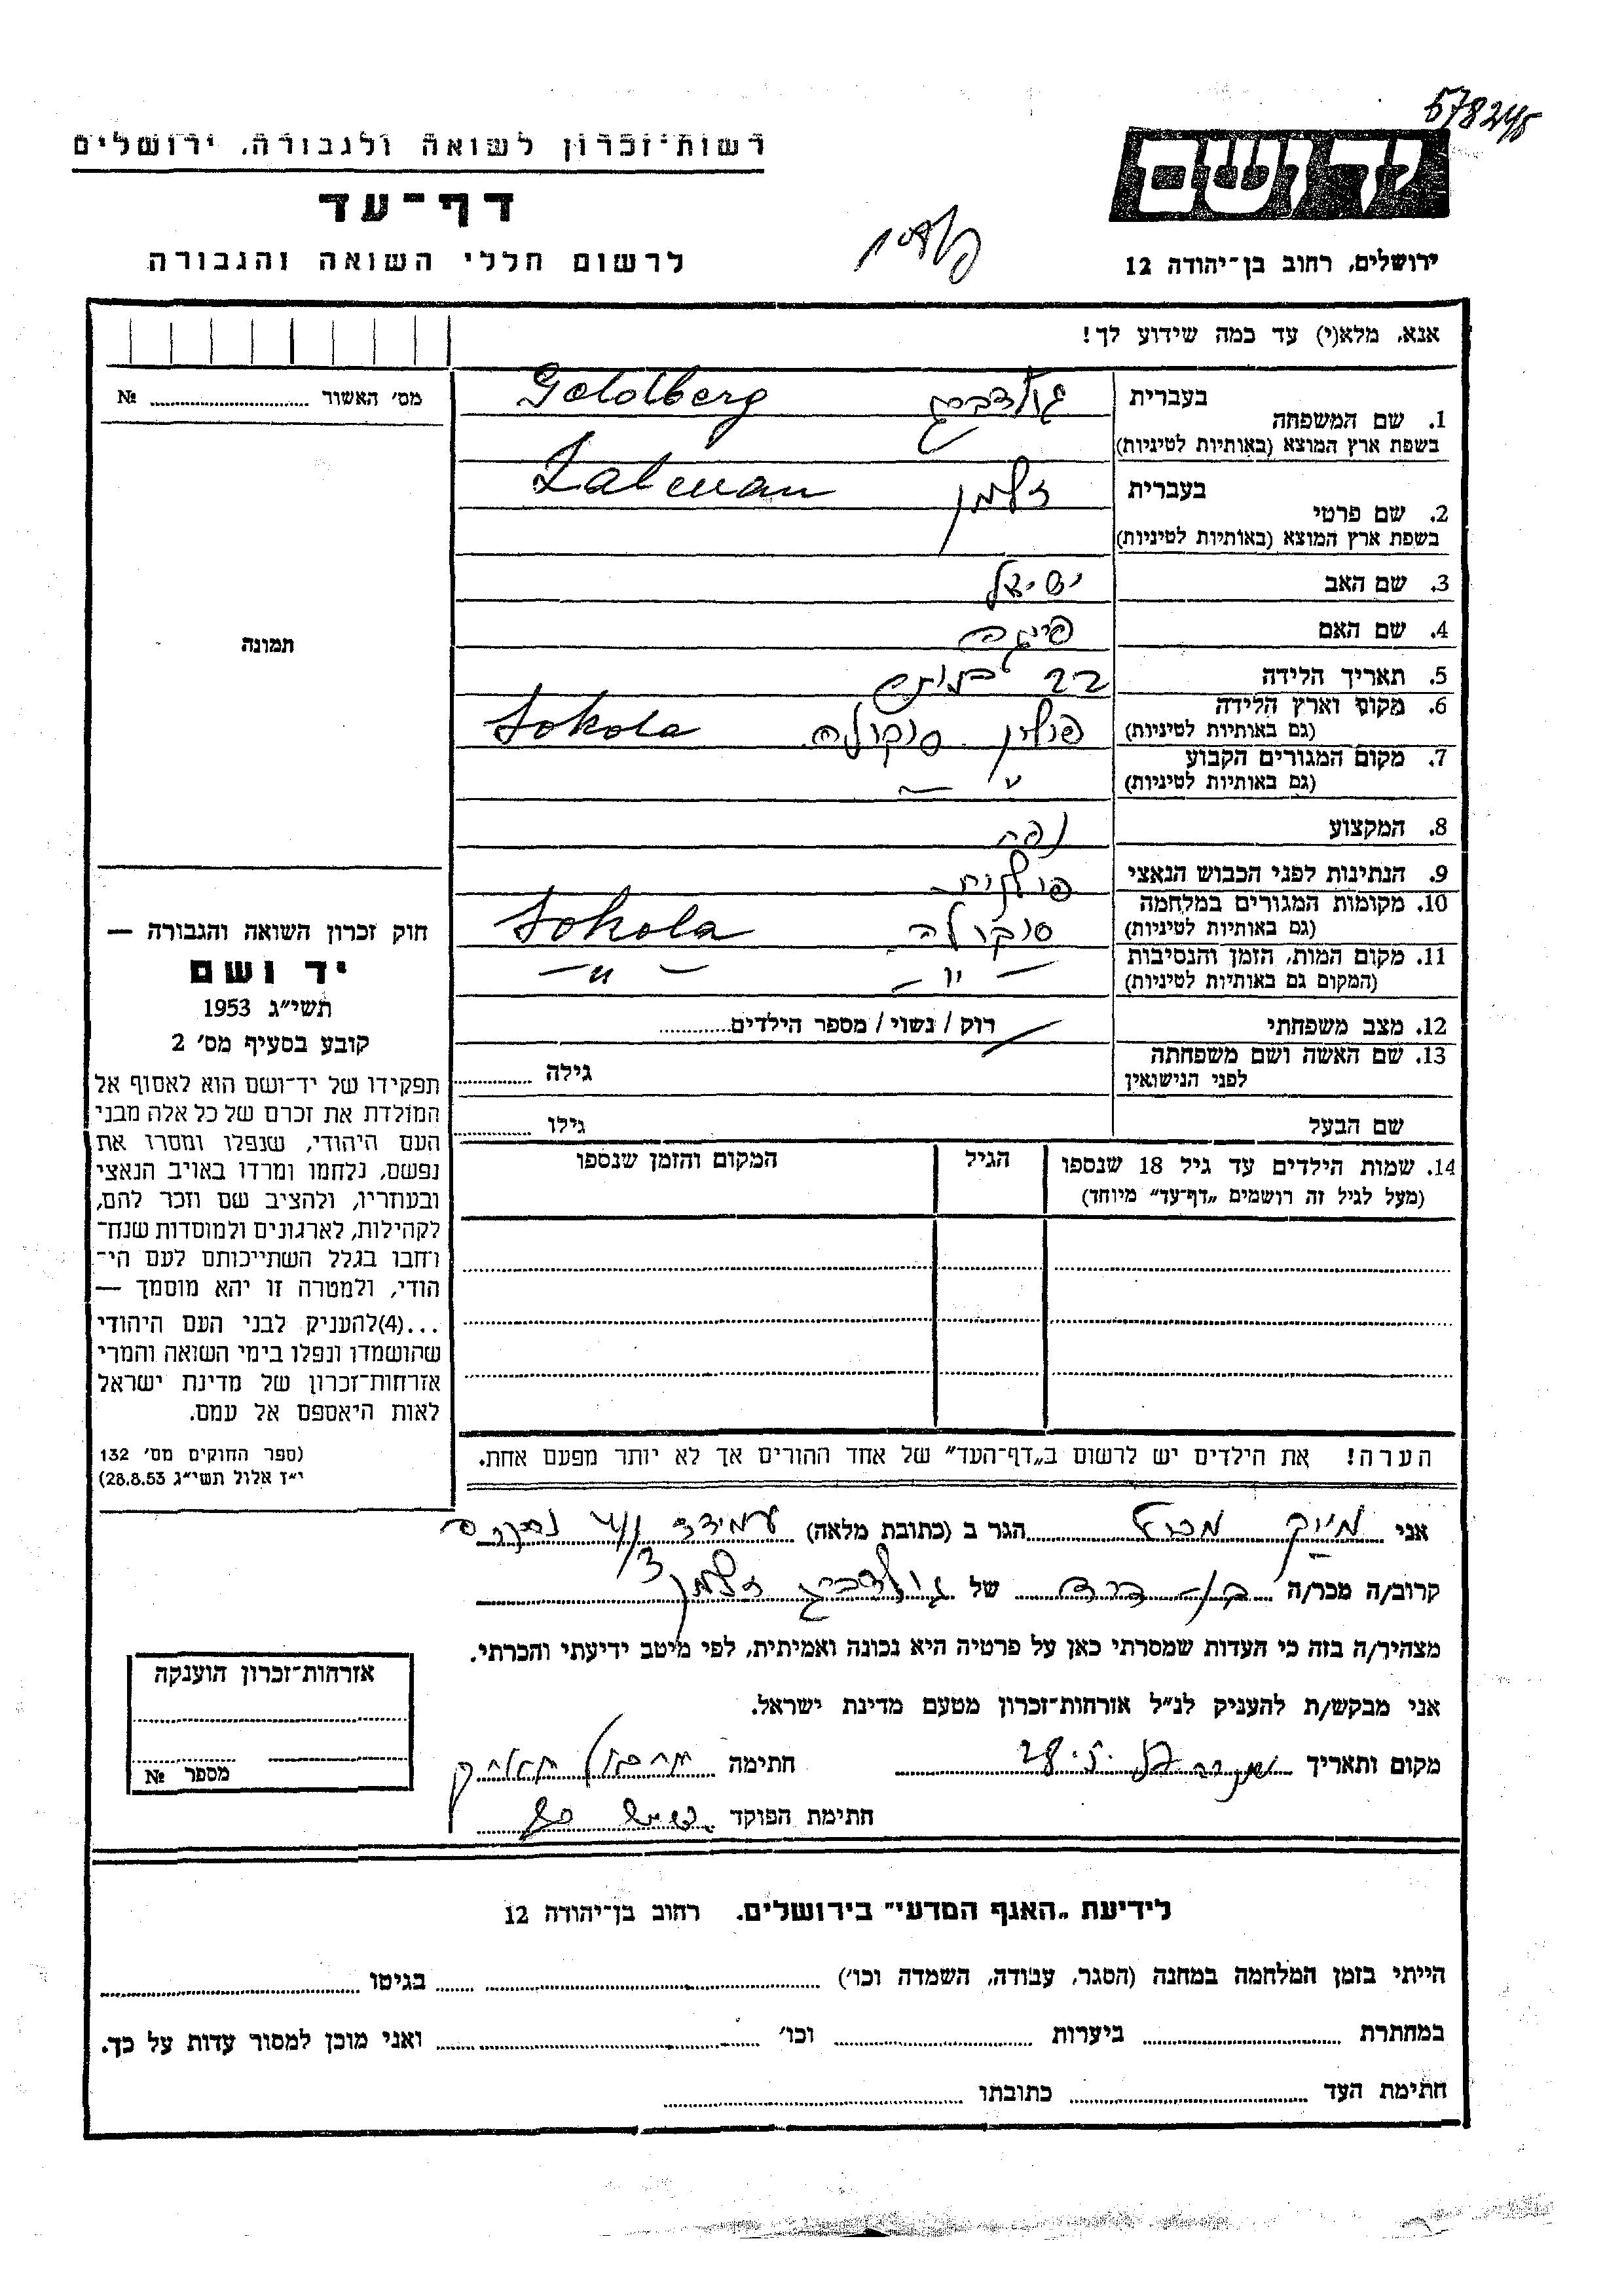 578245
רשות־זכרון לשואה ולגבורה, ירושלים
יד ושם
דף־עד
לרשום חללי השואה והגבורה
ירושלים, רחוב בן־יהודה 12
אנא, מלא(י) עד כמה שידוע לך!
מס׳ האשור № 
1. שם המשפחה בעברית גולדברג Goldberg
בשפת ארץ המוצא (באותיות לטיניות)
2. שם פרטי בעברית זלמן Zalman
בשפת ארץ המוצא (באותיות לטיניות)
3. שם האב ישראל
4. שם האם פייגה
5. תאריך הלידה 22
6. מקום וארץ הלידה פולין סוקולה Sokola
(גם באותיות לטיניות)
7. מקום המגורים הקבוע — " —
(גם באותיות לטיניות)
8. המקצוע נפח
9. הנתינות לפני הכבוש הנאצי פולנית
10. מקומות המגורים במלחמה סוקולה Sokola
(גם באותיות לטיניות)
11. מקום המות, הזמן והנסיבות — " — — " —
(המקום גם באותיות לטיניות)
12. מצב משפחתי רוק / נשוי / מספר הילדים
13. שם האשה ושם משפחתה גילה
לפני הנישואין
שם הבעל גילו
14. שמות הילדים עד גיל 18 שנספו הגיל המקום והזמן שנספו
(מעל לגיל זה רושמים „דף־עד" מיוחד)
הערה! את הילדים יש לרשום ב„דף־העד" של אחד ההורים אך לא יותר מפעם אחת.
תמונה
חוק זכרון השואה והגבורה —
יד ושם
תשי״ג 1953
קובע בסעיף מס׳ 2
תפקידו של יד־ושם הוא לאסוף אל
המולדת את זכרם של כל אלה מבני
העם היהודי, שנפלו ומסרו את
נפשם, נלחמו ומרדו באויב הנאצי
ובעוזריו, ולהציב שם וזכר להם,
לקהילות, לארגונים ולמוסדות שנח־
רחבו בגלל השתייכותם לעם הי־
הודי, ולמטרה זו יהא מוסמך —
...(4)להעניק לבני העם היהודי
שהושמדו ונפלו בימי השואה והמרי
אזרחות־זכרון של מדינת ישראל
לאות היאספם אל עמם.
(ספר החוקים מס׳ 132
י״ז אלול תשי״ג 28.8.53)
אני הגר ב (כתובת מלאה) עמידר
קרוב/ה מכר/ה בן דוד של גולדברג זלמן
מצהיר/ה בזה כי העדות שמסרתי כאן על פרטיה היא נכונה ואמיתית, לפי מיטב ידיעתי והכרתי.
אני מבקש/ת להעניק לנ״ל אזרחות־זכרון מטעם מדינת ישראל.
מקום ותאריך חתימה
חתימת הפוקד
אזרחות־זכרון הוענקה
מספר №
לידיעת „האגף המדעי" בירושלים, רחוב בן־יהודה 12
הייתי בזמן המלחמה במחנה (הסגר, עבודה, השמדה וכו׳) בגיטו
במחתרת ביערות וכו׳ ואני מוכן למסור עדות על כך.
חתימת העד כתובתו